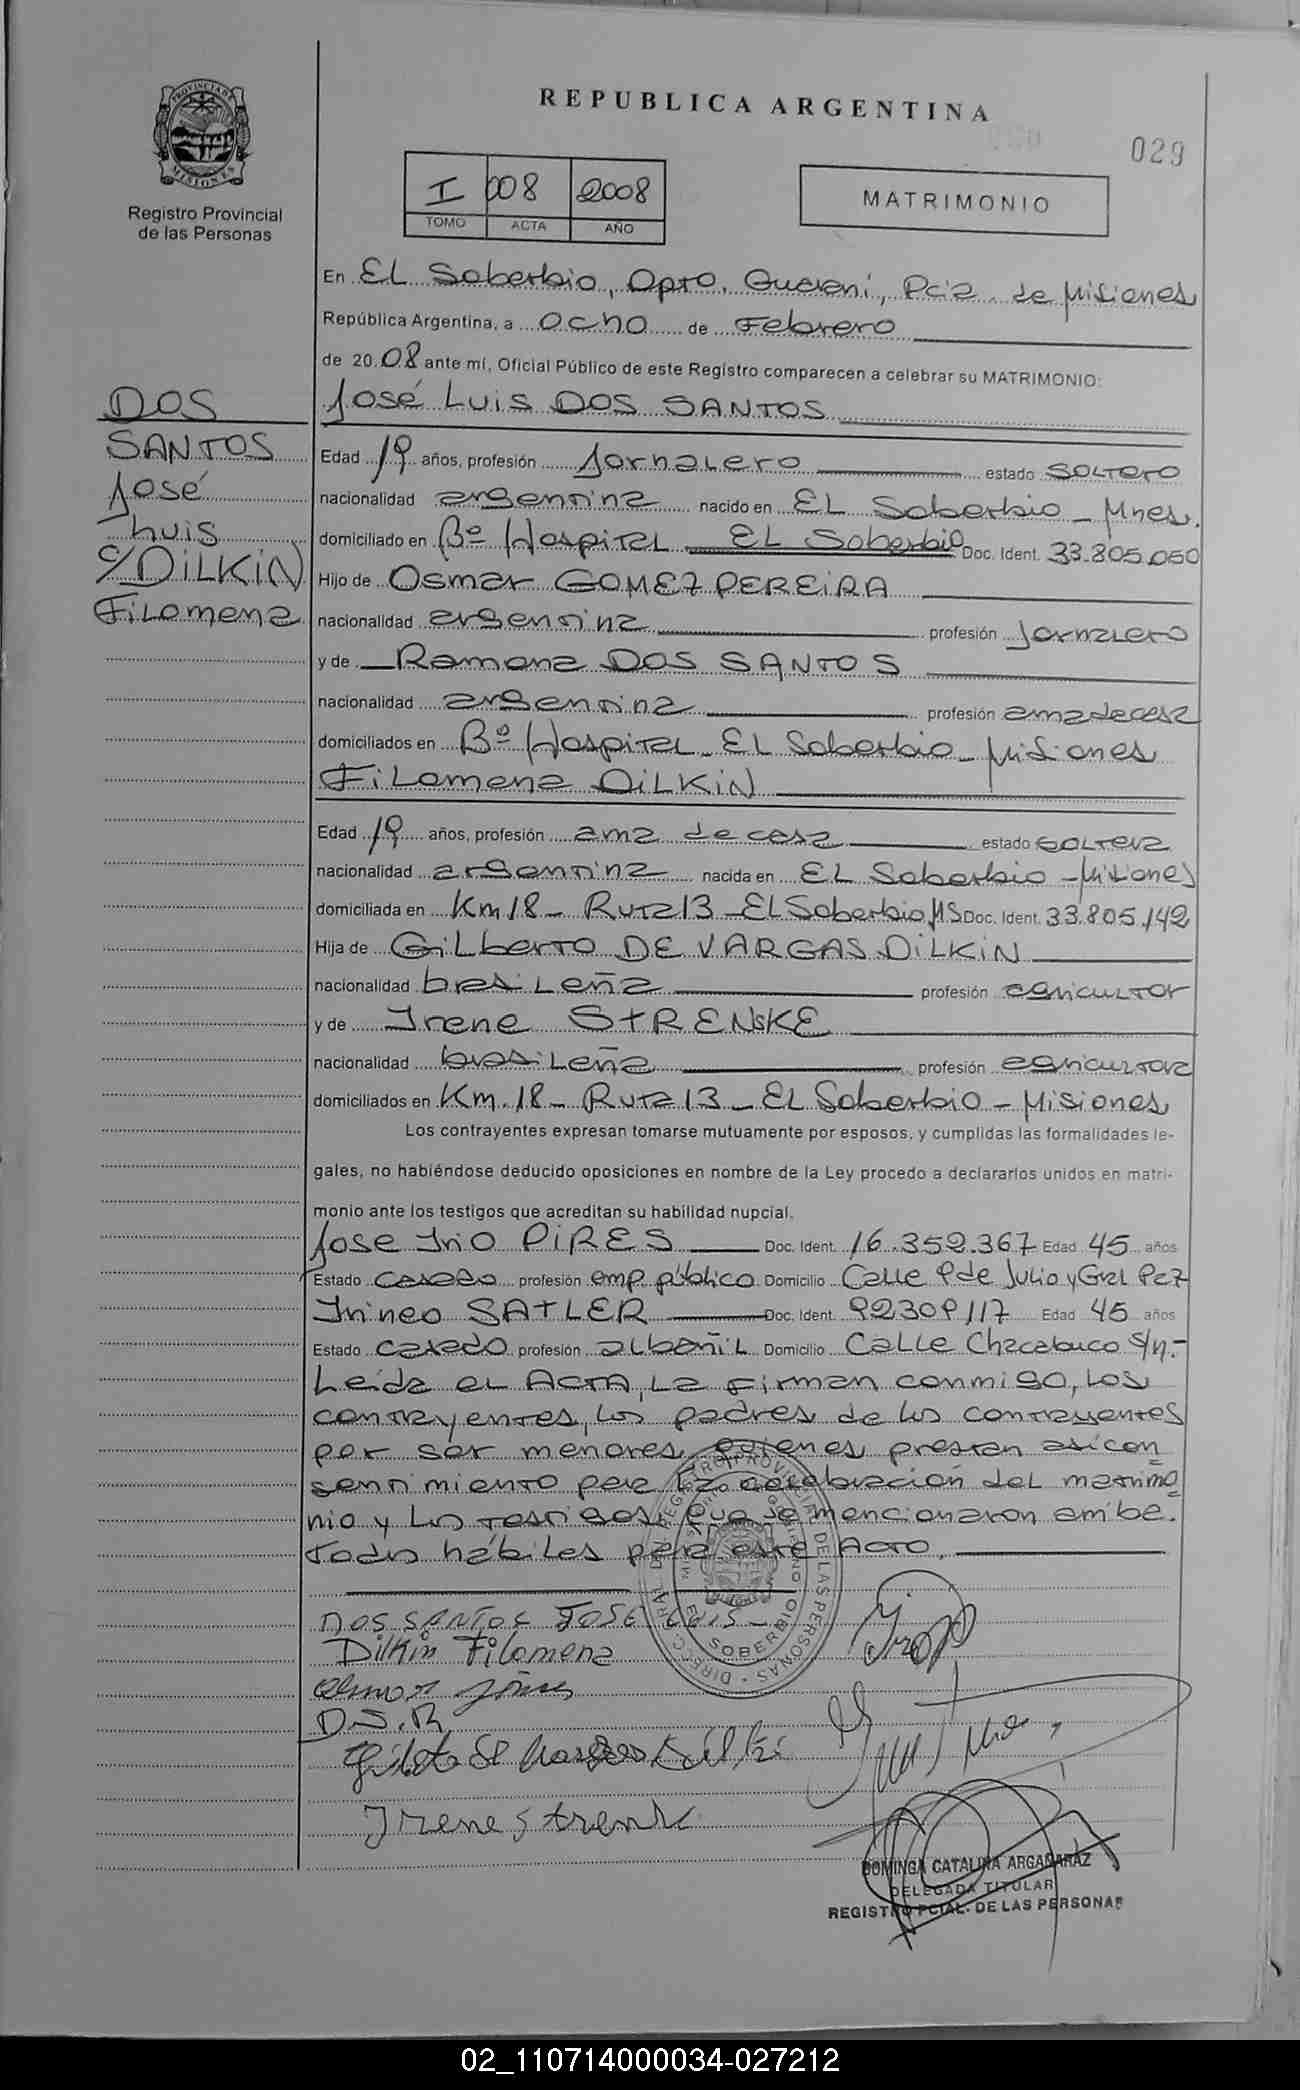 REPUBLICA ARGENTINA
029
PROVINCIA DE
MISIONES
Registro Provincial
de las Personas
I 008 2008
TOMO ACTA AÑO
MATRIMONIO
En EL Soberbio, Dpto. Guaraní, Pcia. de Misiones
República Argentina, a ocho de Febrero
de 20 08 ante mí, Oficial Público de este Registro comparecen a celebrar su MATRIMONIO:
José Luis DOS SANTOS
DOS
SANTOS
José
Luis
c/DILKIN
Filomena
Edad 19 años, profesión Jornalero estado soltero
nacionalidad argentina nacido en EL Soberbio - Mnes.
domiciliado en Bº Hospital EL Soberbio Doc. Ident. 33.805.050
Hijo de Osmar GOMEZ PEREIRA
nacionalidad argentina profesión Jornalero
y de Ramona DOS SANTOS
nacionalidad argentina profesión ama de casa
domiciliados en Bº Hospital - EL Soberbio - Misiones
Filomena DILKIN
Edad 19 años, profesión ama de casa estado soltera
nacionalidad argentina nacida en EL Soberbio - Misiones
domiciliada en Km 18 - Ruta 13 - EL Soberbio, MS Doc. Ident. 33.805.142
Hija de Gilberto DE VARGAS DILKIN
nacionalidad brasileña profesión agricultor
y de Irene STRENSKE
nacionalidad brasileña profesión agricultora
domiciliados en Km. 18 - Ruta 13 - EL Soberbio - Misiones
Los contrayentes expresan tomarse mutuamente por esposos, y cumplidas las formalidades le-
gales, no habiéndose deducido oposiciones en nombre de la Ley procedo a declararlos unidos en matri-
monio ante los testigos que acreditan su habilidad nupcial.
Jose Irio PIRES Doc. Ident. 16.352.367 Edad 45 años
Estado casado profesión emp. público Domicilio Calle 9 de Julio y Gral Paz
Irineo SATLER Doc. Ident. 92309117 Edad 45 años
Estado casado profesión albañil Domicilio Calle Chacabuco S/n.-
Leída el ACTA, La firman conmigo, los
contrayentes, los padres de los contrayentes
por ser menores, quienes prestan asi con
sentimiento para la celebración del matrimo
nio y los testigos que se mencionaron arriba.
Todos hábiles para este Acto.
DOS SANTOS JOSE LUIS
Dilkin Filomena
D.S.R
Irene Strenk
EL SOBERBIO
DOMINGA CATALINA ARGAÑARAZ
DELEGADA TITULAR
REGISTRO PCIAL. DE LAS PERSONAS
02_110714000034-027212